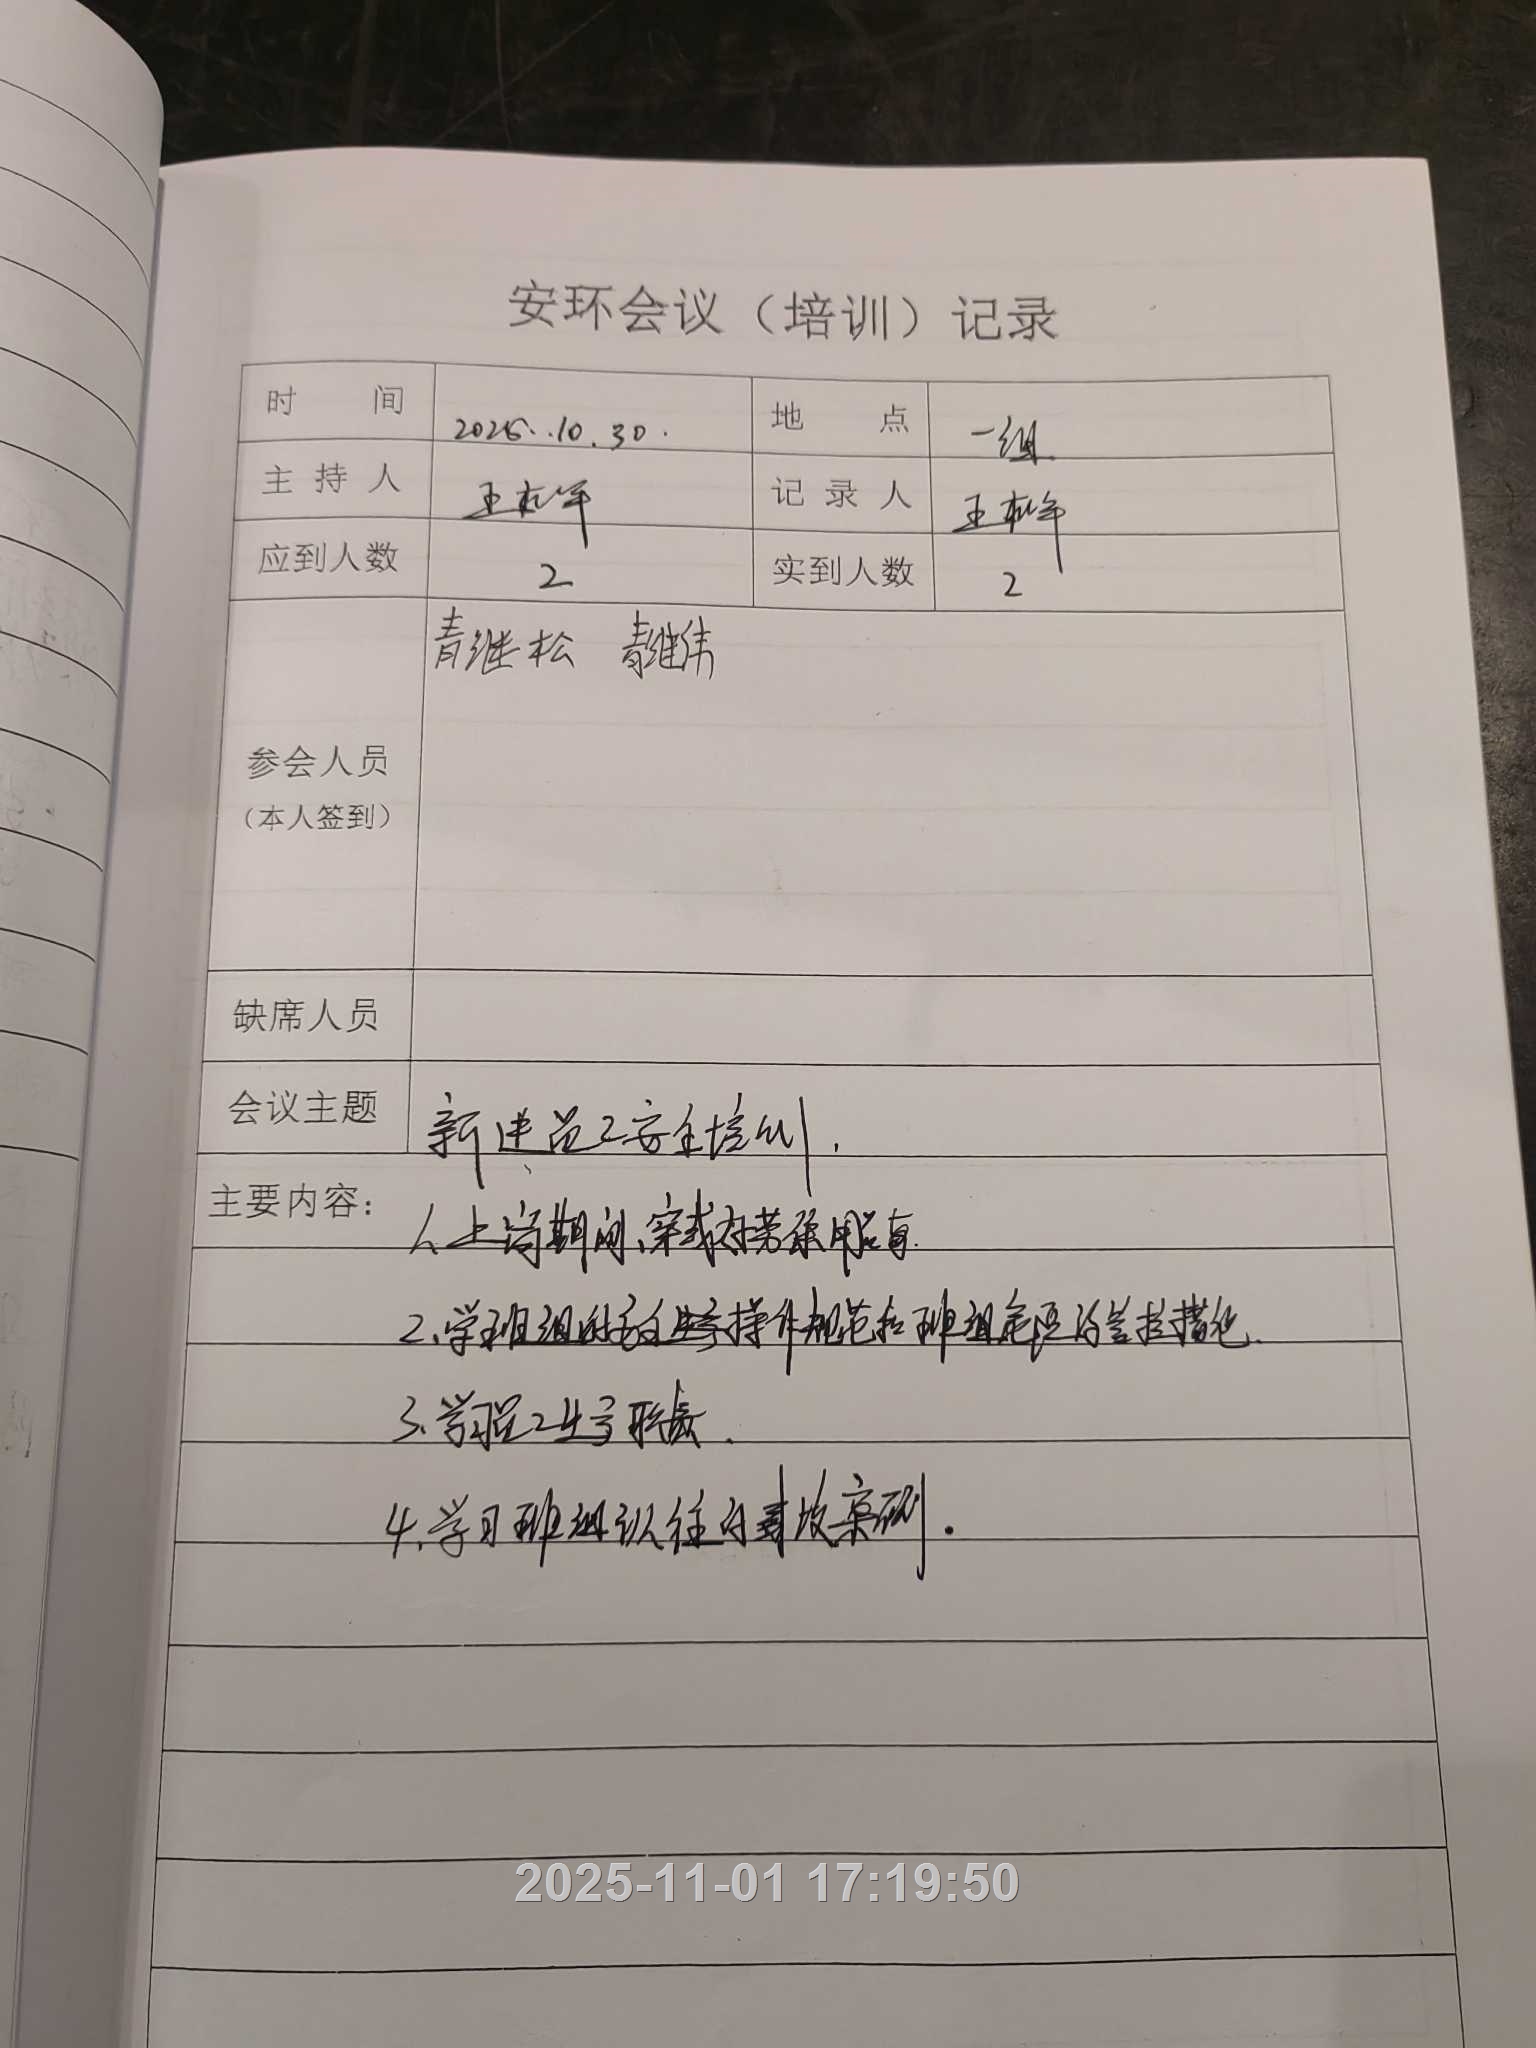 安环会议（培训）记录
时 间 2025.10.30. 地 点 一组
主 持 人 王松年 记 录 人 王松年
应到人数 2 实到人数 2
青继松 青继伟
参会人员
（本人签到）
缺席人员
会议主题 新进员工安全培训.
主要内容： 1、上岗期间、穿戴好劳保用品
2、学班组的 操作规范和班组 管控措施.
3、学习员工 职责.
4、学习班组以往的事故案例.
2025-11-01 17:19:50